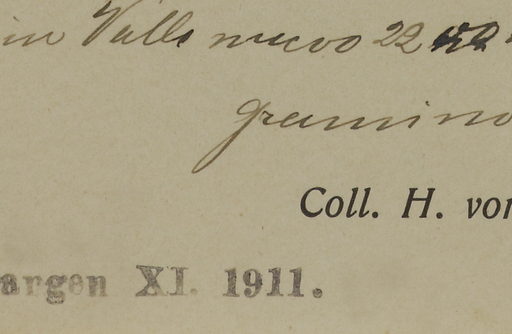 in Valle nuevo 22
gramino
Coll. H. von
argen XI. 1911.